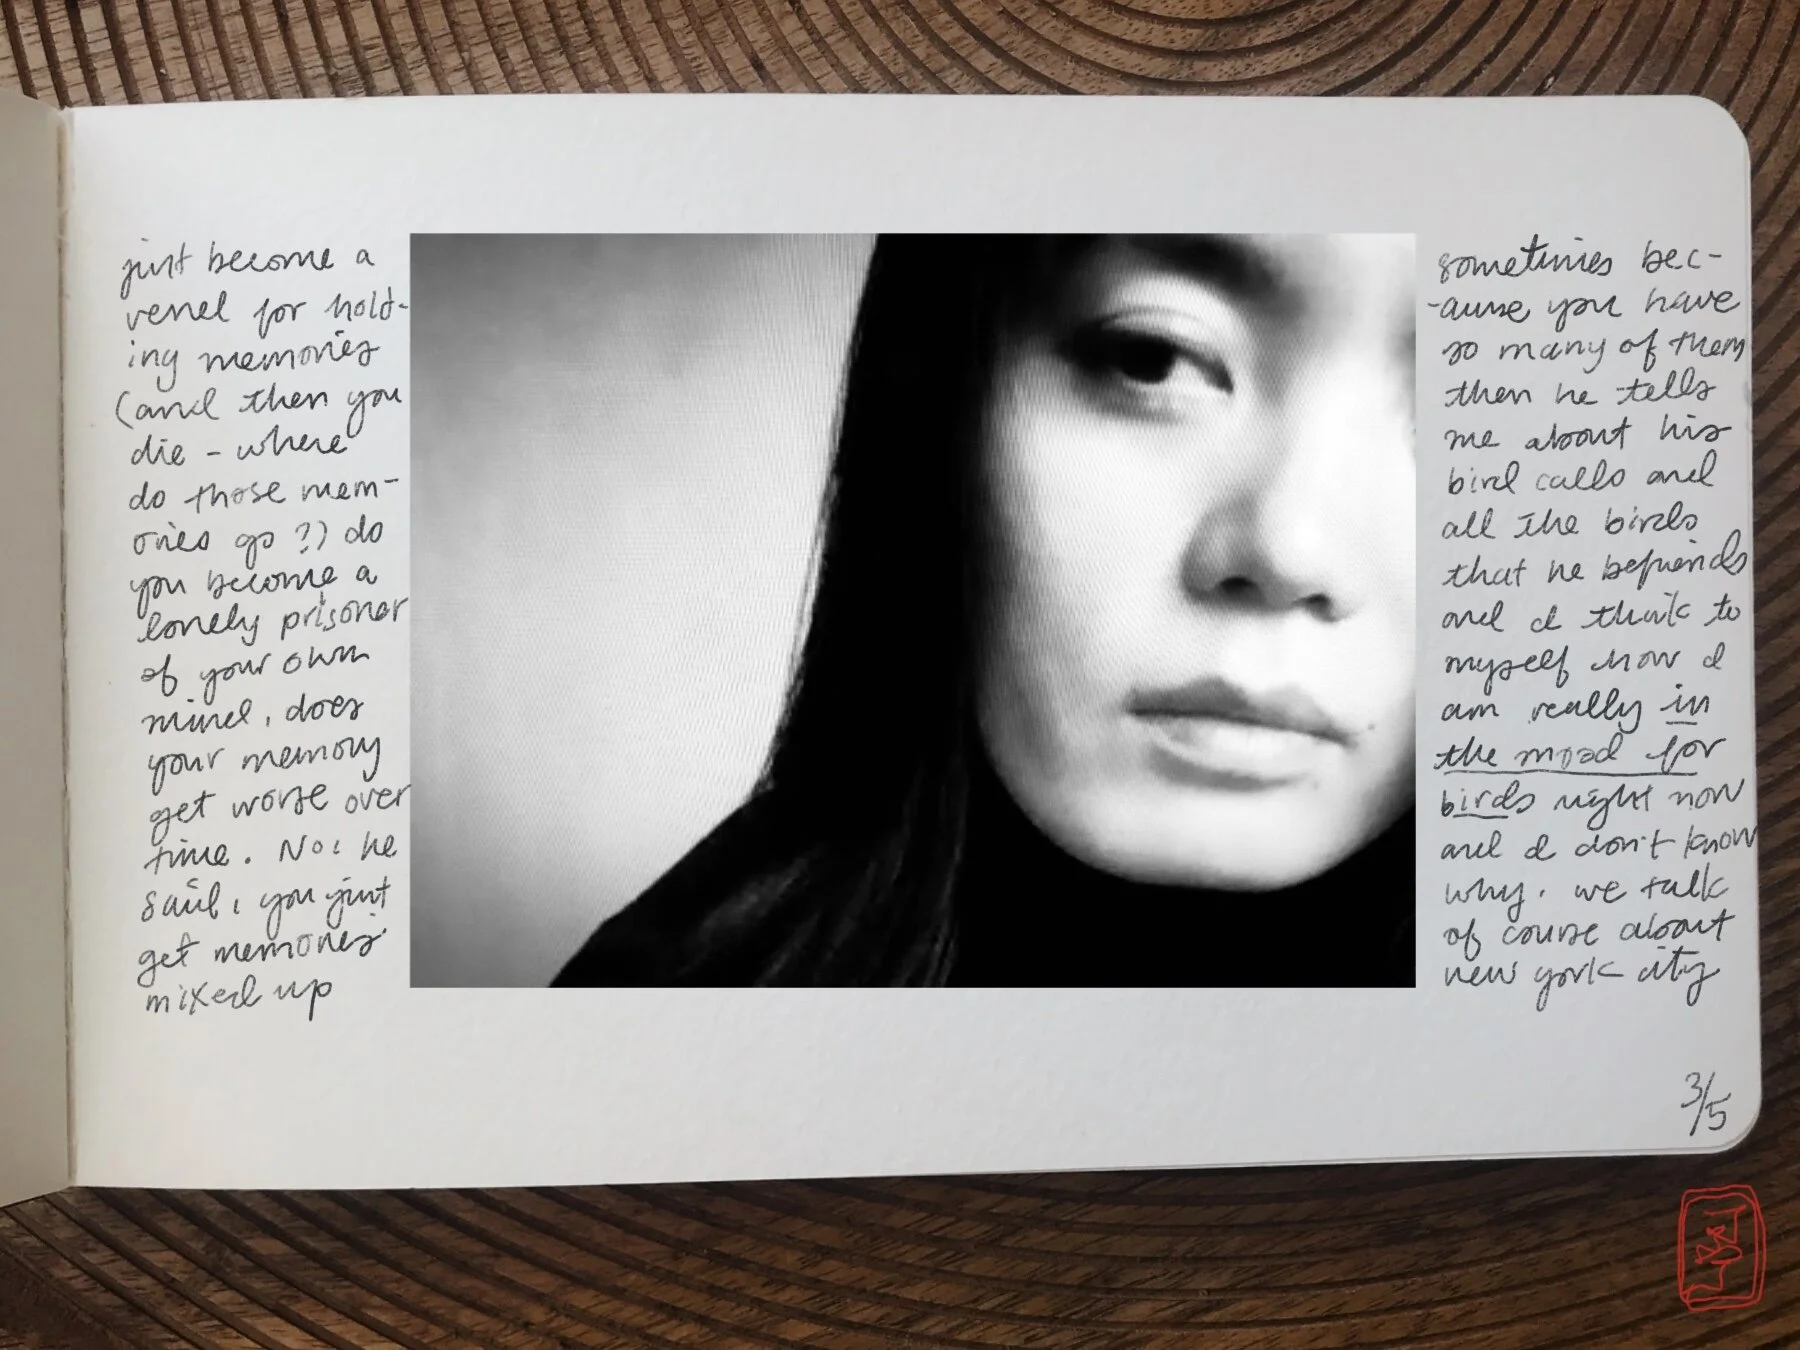 just become a
vessel for hold-
ing memories
(and then you
die - where
do those mem-
ories go?) do
you become a
lonely prisoner
of your own
mind, does
your memory
get worse over
time. No: he
said, you just
get memories
mixed up
sometimes bec-
-ause you have
so many of them
then he tells
me about his
bird calls and
all the birds
that he befriends
and I think to
myself how I
am really in
the mood for
birds right now
and I don't know
why. we talk
of course about
new york city
3/5